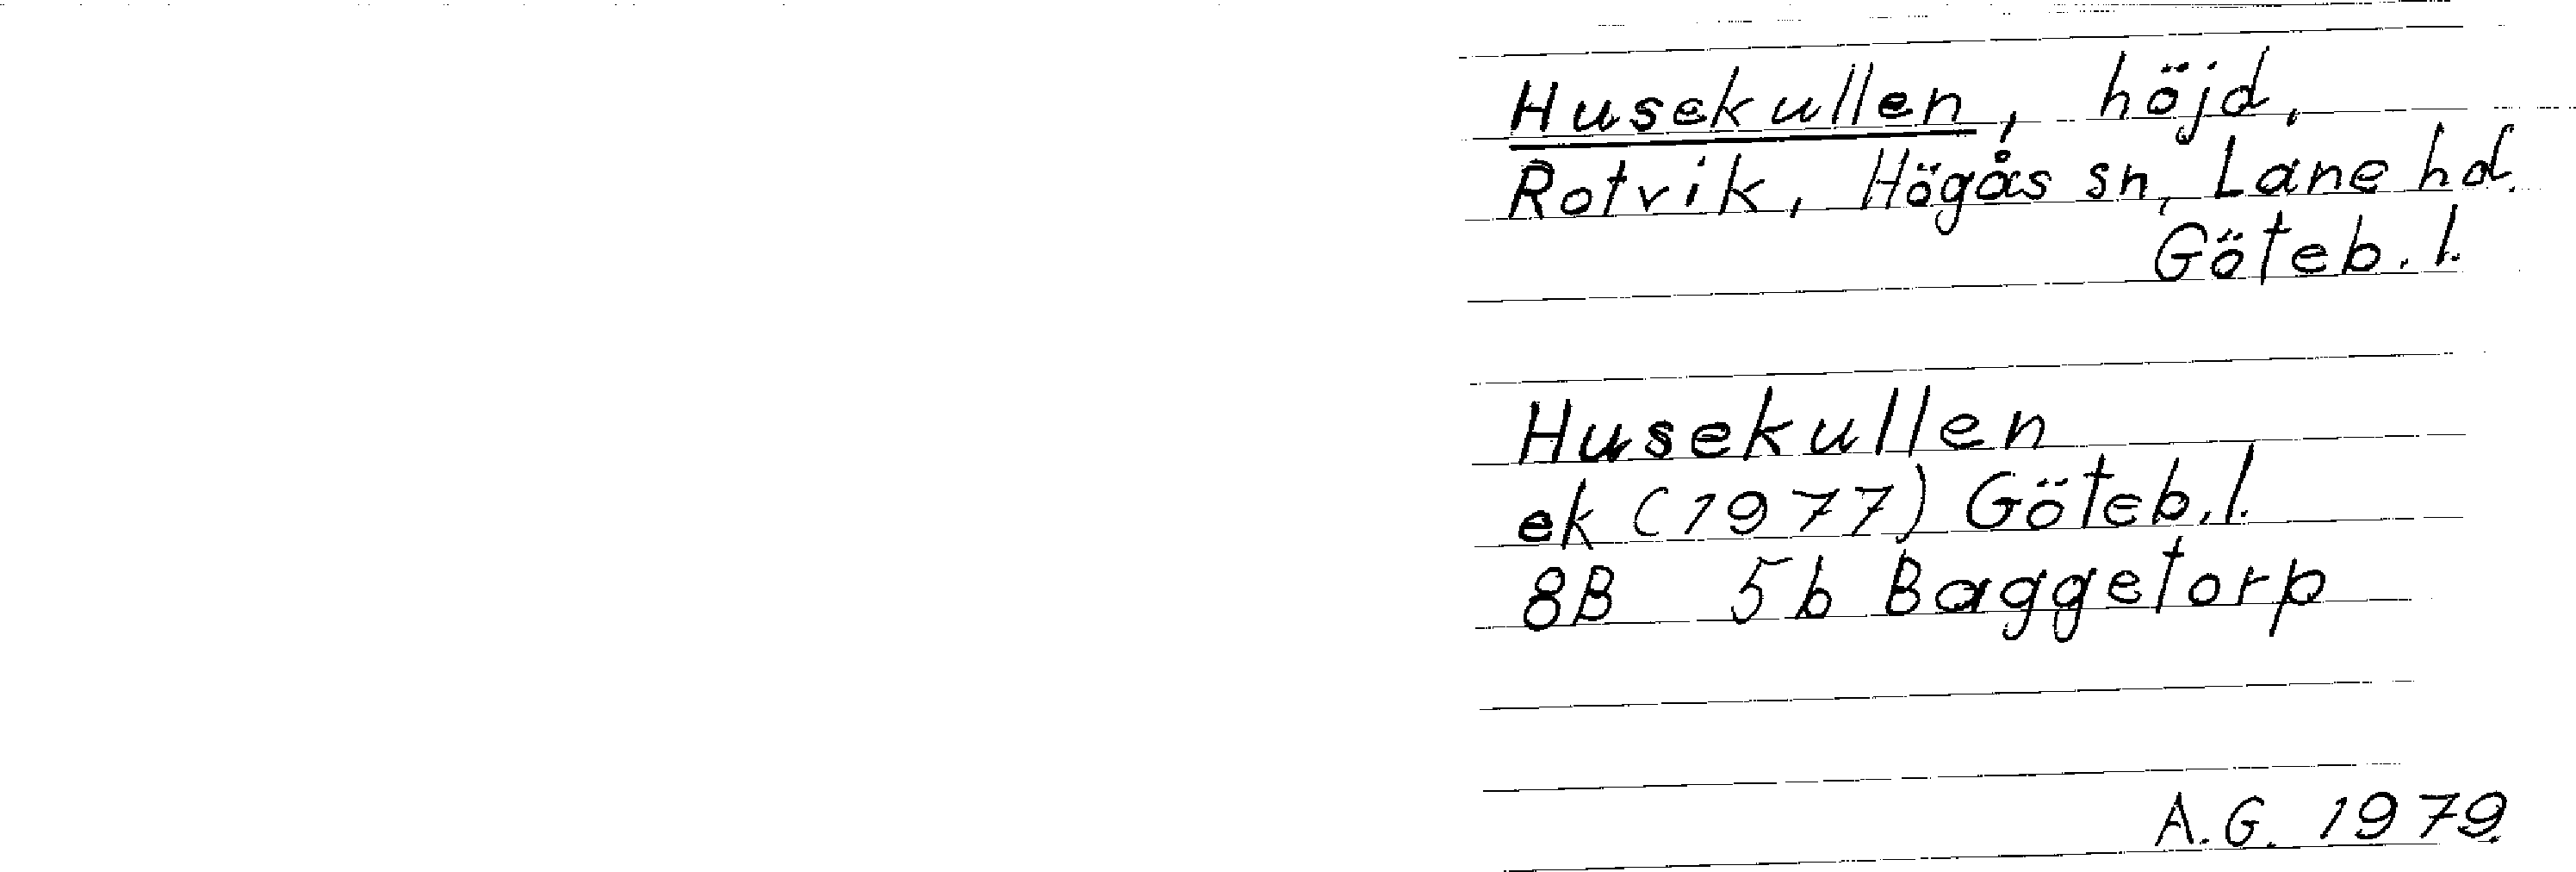 Husekullen, höjd,
Rotvik, Högås sn, Lane hd.
Göteb. l.
Husekullen
ek (1977) Göteb. l.
8B 5b Baggetorp
A.G. 1979.